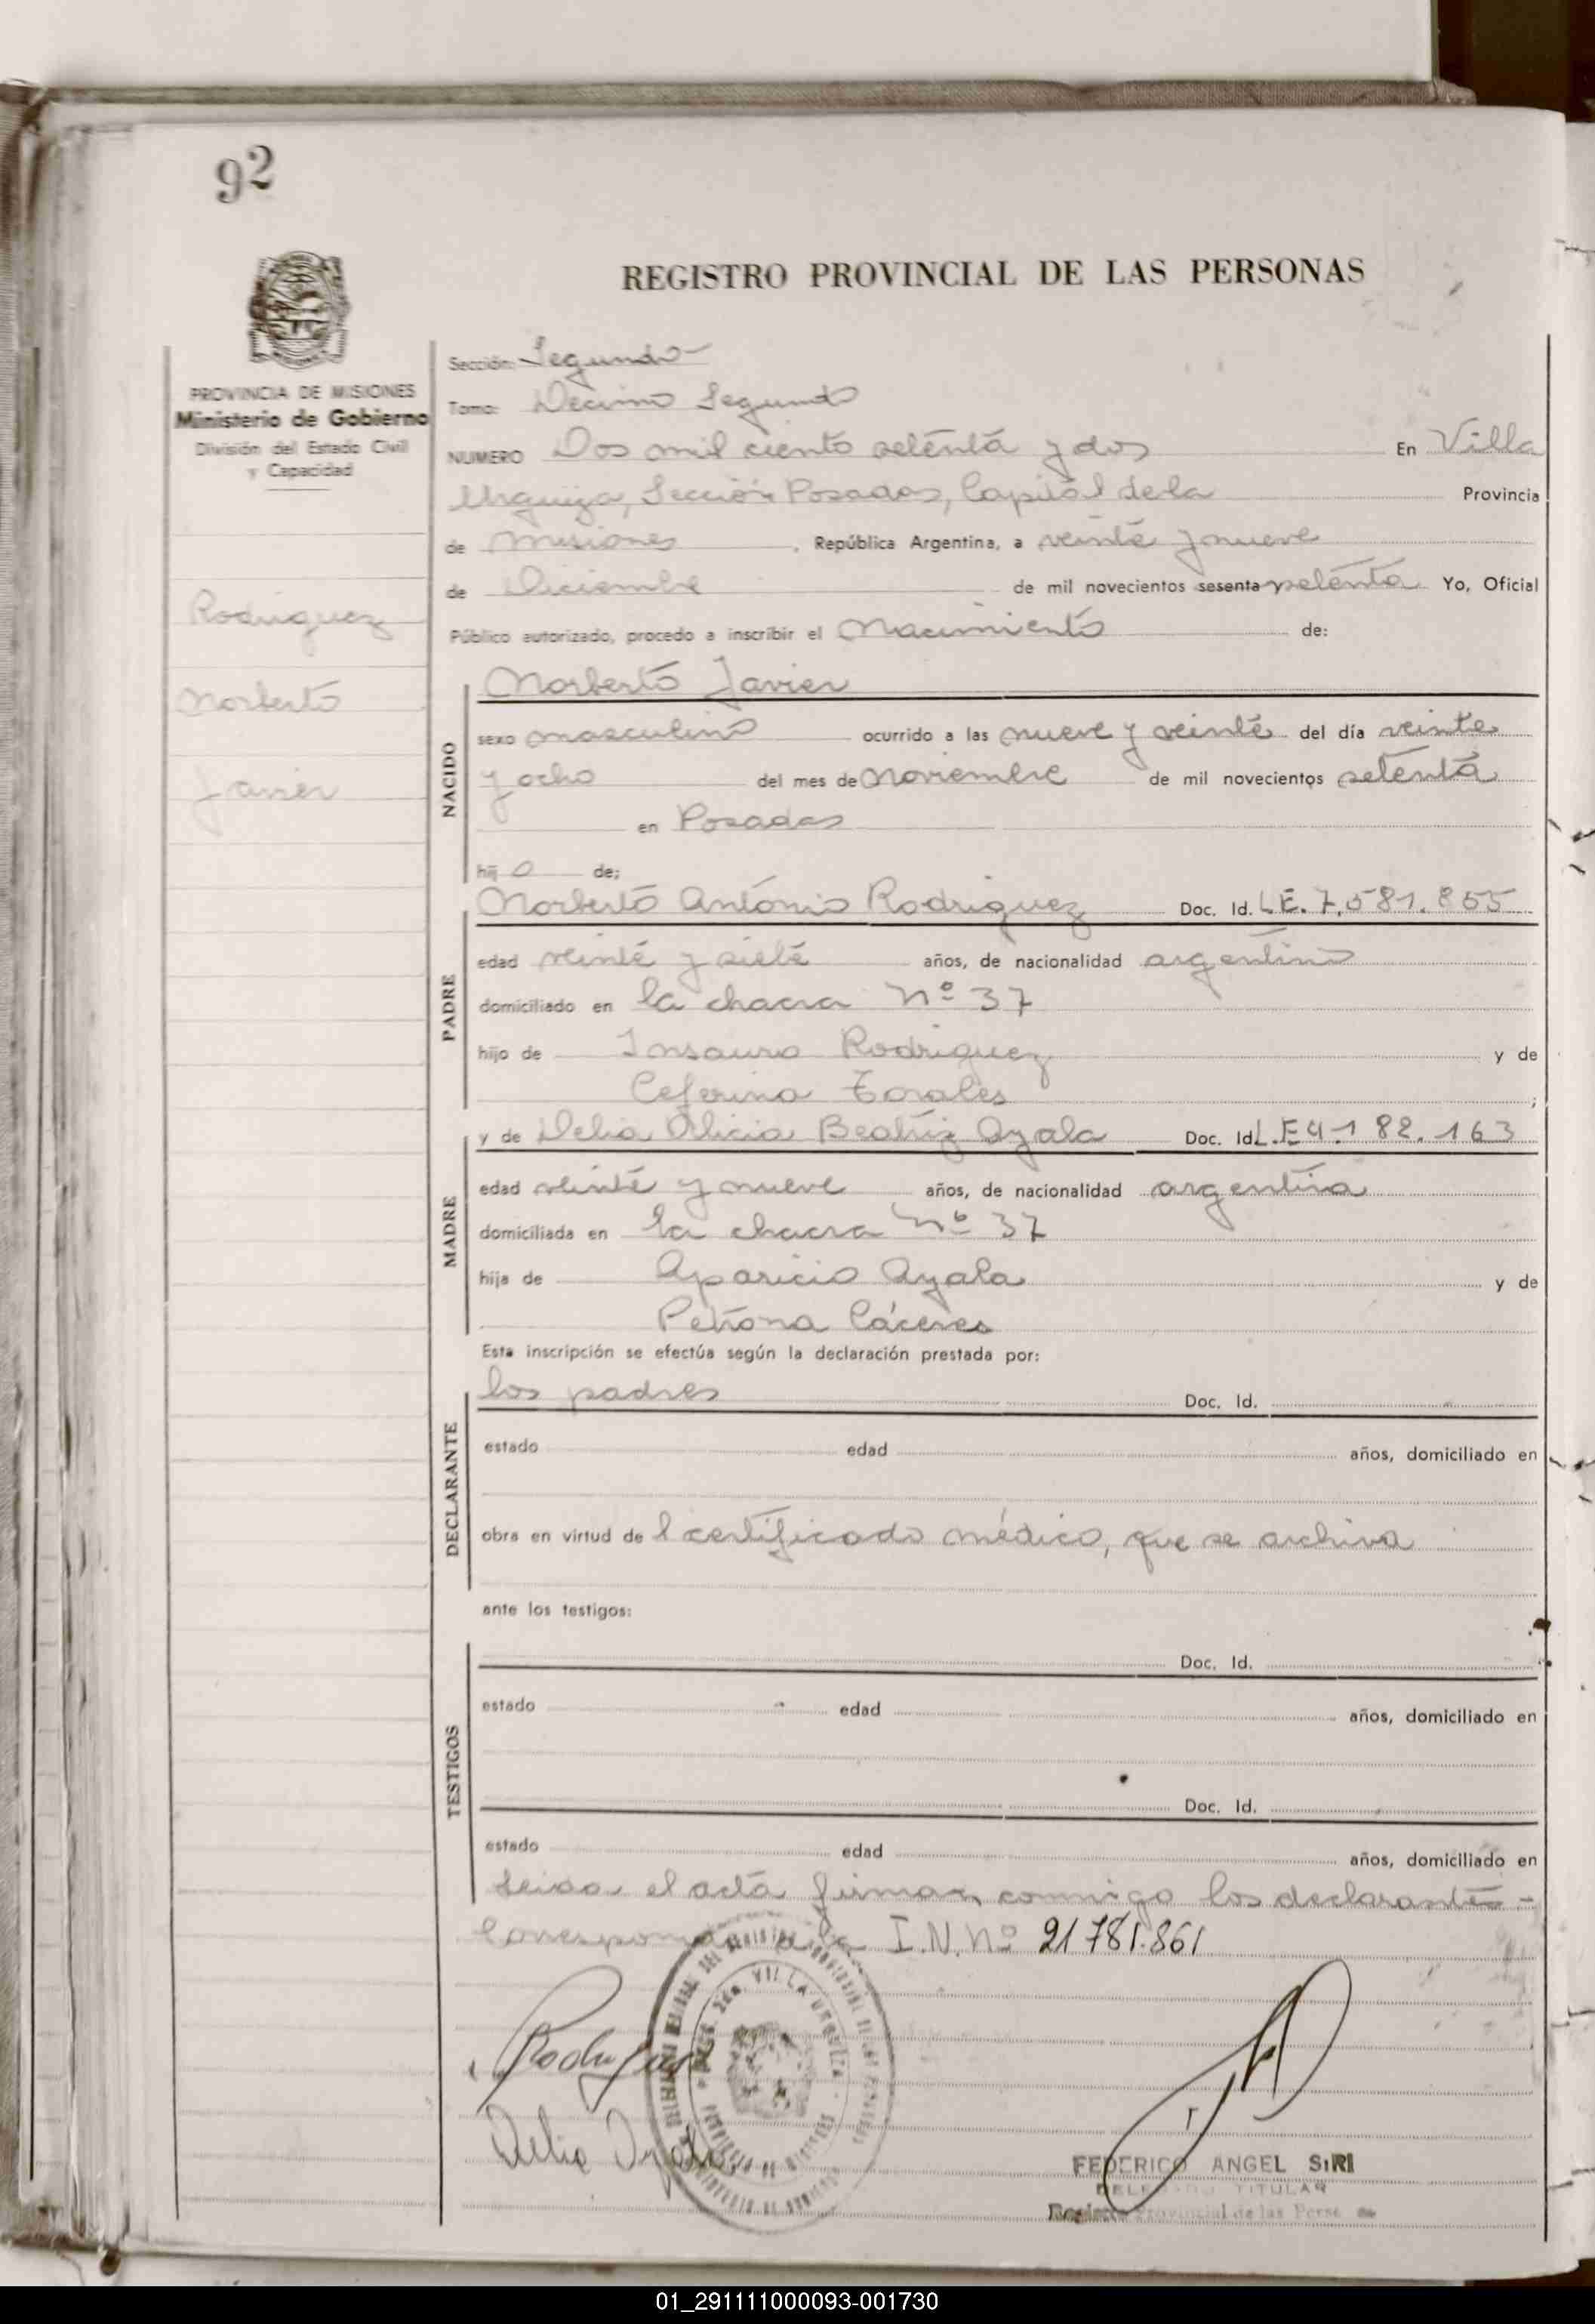 92
REGISTRO PROVINCIAL DE LAS PERSONAS
PROVINCIA DE MISIONES
Ministerio de Gobierno
División del Estado Civil
y Capacidad
Rodriguez
Norberto
Javier
Sección: Segundo
Tomo: Decimo Segundo
NUMERO Dos mil ciento setenta y dos En Villa
Urquiza, Sección Posadas, Capital de la Provincia
de Misiones, República Argentina, a veinte y nueve
de Diciembre de mil novecientos sesenta setenta Yo, Oficial
Público autorizado, procedo a inscribir el Nacimiento de:
NACIDO
Norberto Javier
sexo masculino ocurrido a las nueve y veinte del día veinte
y ocho del mes de Noviembre de mil novecientos setenta
en Posadas
hij o de;
PADRE
Norberto Antonio Rodriguez Doc. Id. L.E. 7.581.855
edad veinte y siete años, de nacionalidad argentino
domiciliado en la chacra Nº 37
hijo de Insauro Rodriguez y de
Ceferina Torales ;
MADRE
y de Delia Alicia Beatriz Ayala Doc. Id L.E 4.182.163
edad veinte y nueve años, de nacionalidad argentina
domiciliada en la chacra Nº 37
hija de Aparicio Ayala y de
Petrona Cáceres
Esta inscripción se efectúa según la declaración prestada por:
DECLARANTE
los padres Doc. Id.
estado edad años, domiciliado en
obra en virtud de l certificado médico, que se archiva
ante los testigos:
TESTIGOS
Doc. Id.
estado edad años, domiciliado en
Doc. Id.
estado edad años, domiciliado en
Leida el acta firman conmigo los declarantes-
Corresponde a la I.N.Nº 21781.861
Rodriguez
Delia Ayala
VILLA URQUIZA
FEDERICO ANGEL SIRI
DELEGADO TITULAR
Registro Provincial de las Perso
01_291111000093-001730